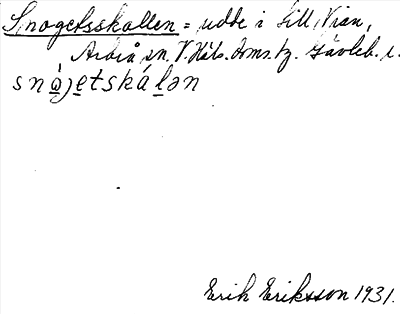 Snogetsskallen = udde i Lill Vian,
Arbrå sn. V. Häls. doms. hg. Gävleb. l.
snå̀jetskálən
Erik Eriksson 1931.